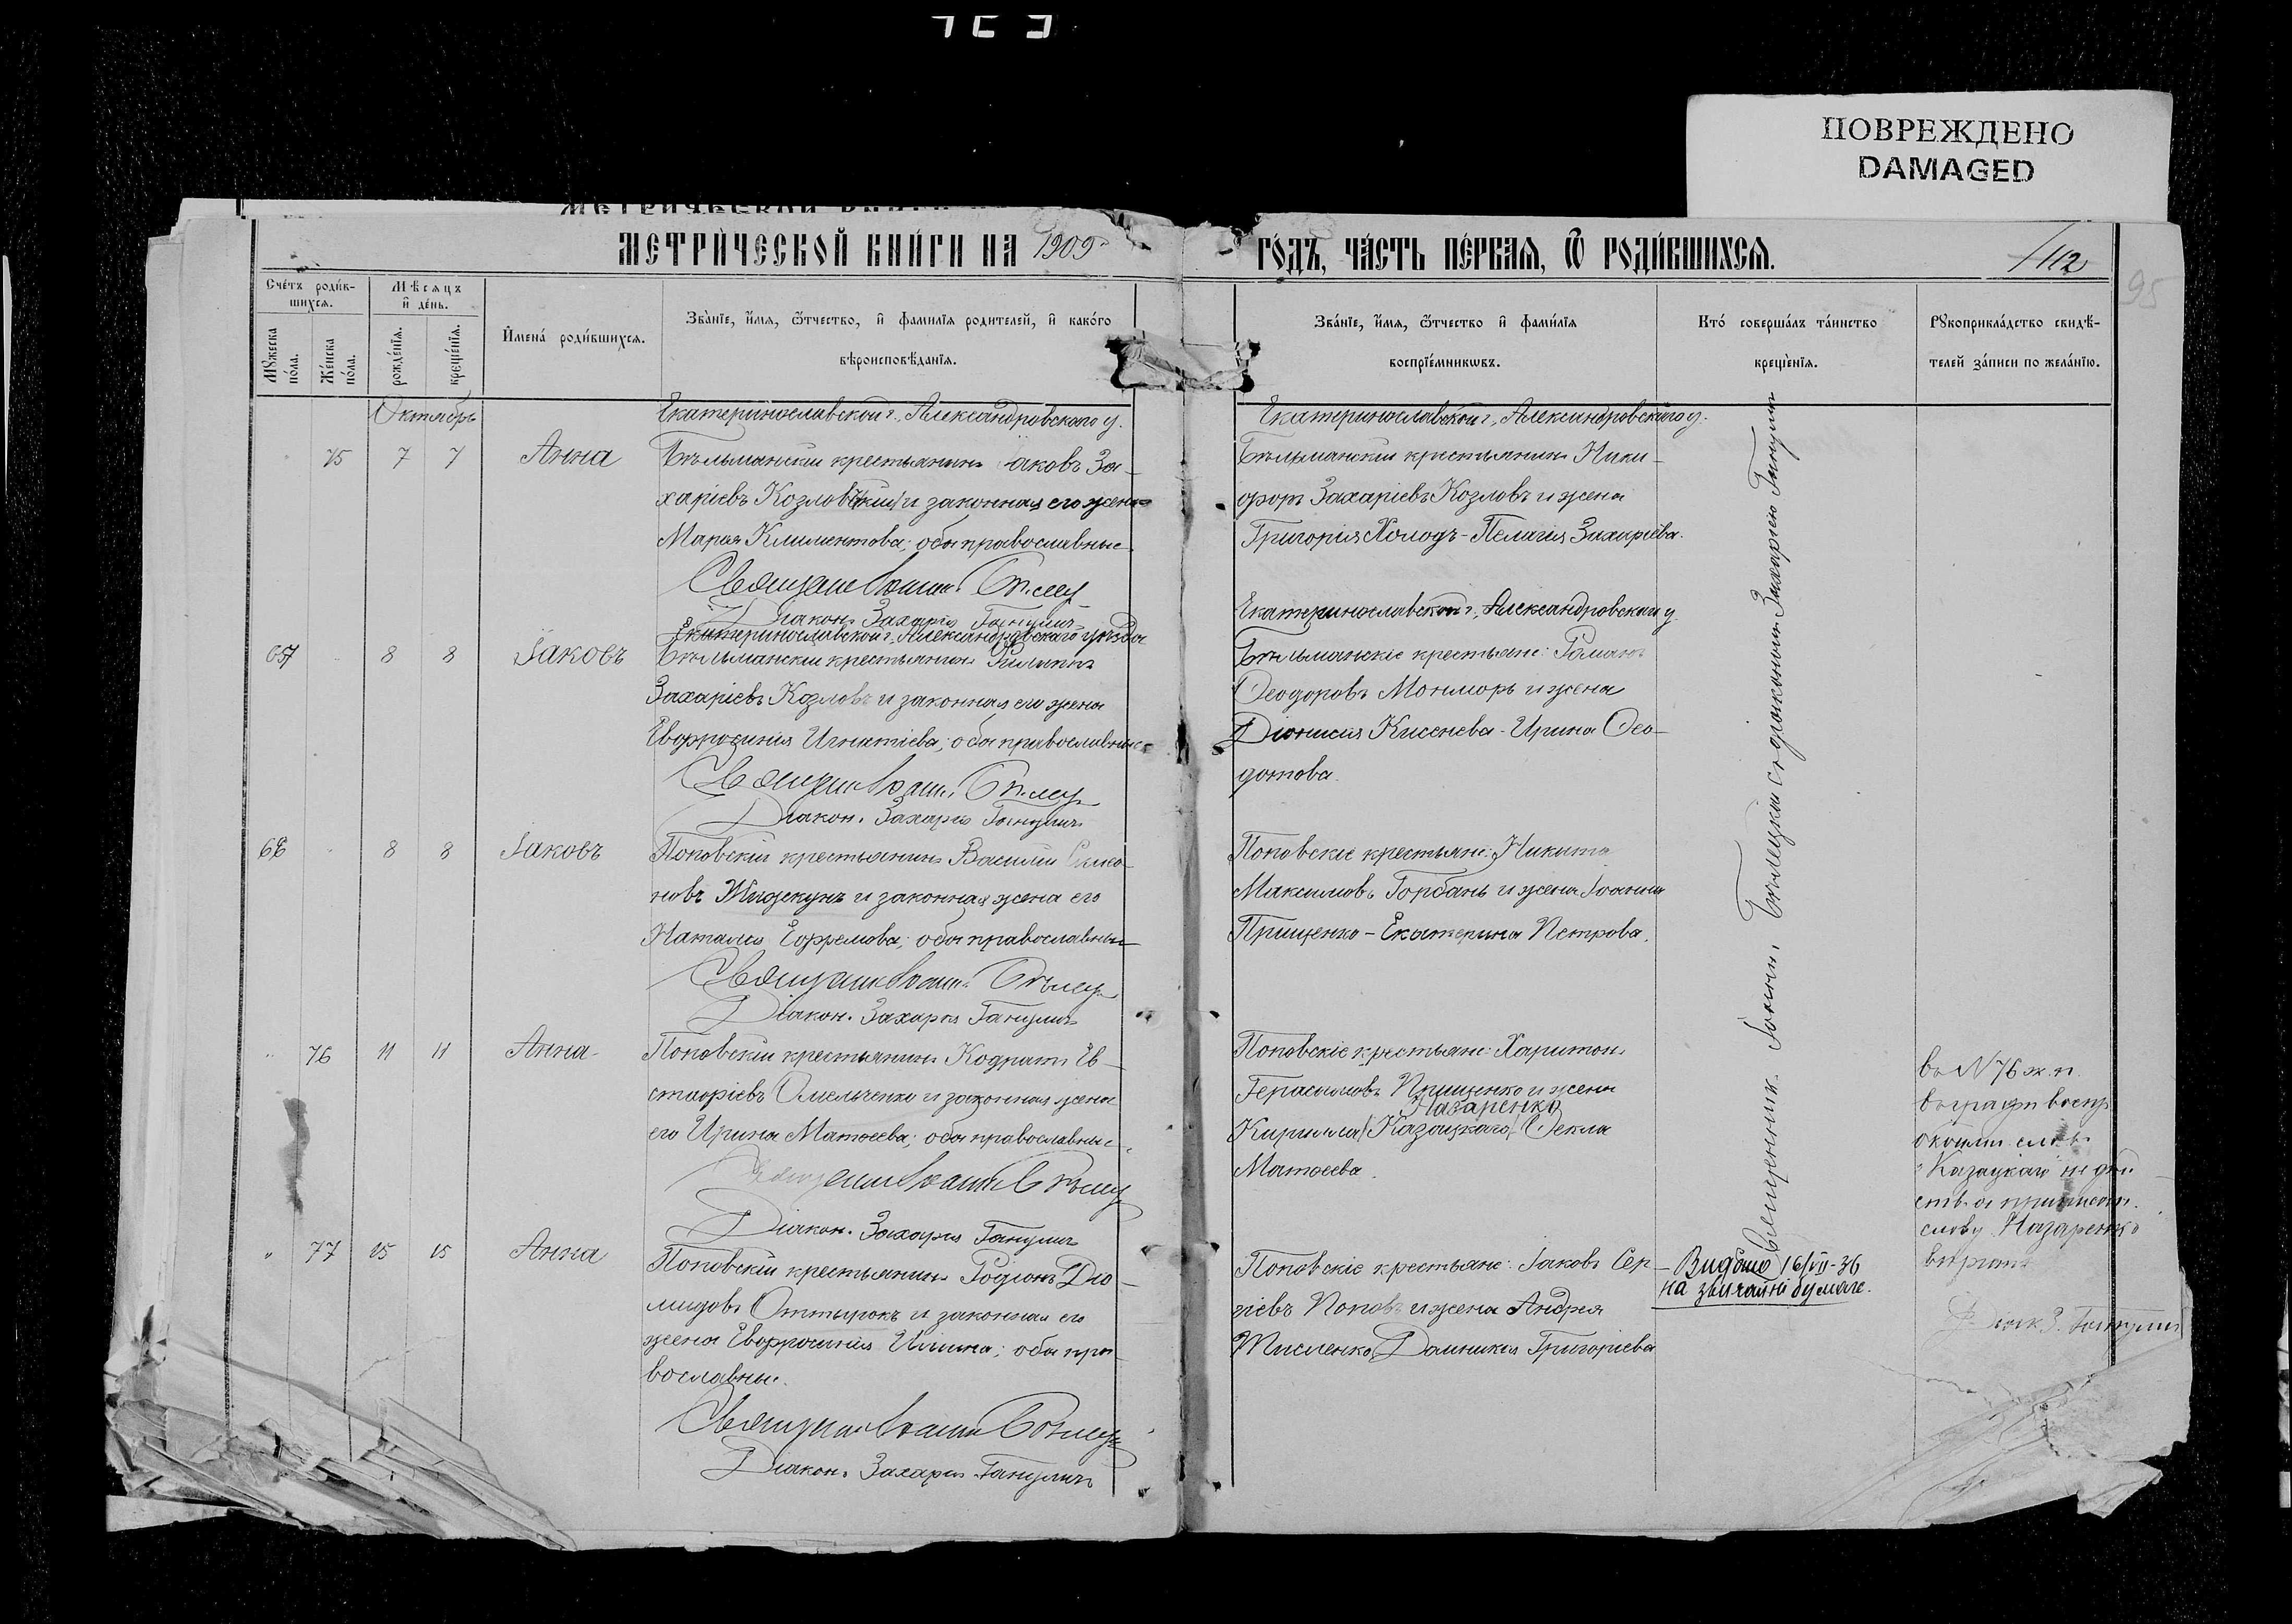 ПОВРЕЖДЕНО
DAMAGED
МЕТРИЧЕСКОЙ КНИГИ НА 1909
ГОДЪ, ЧАСТЬ ПЕРВАЯ, Ѿ РОДИВШИХСЯ.
112
95
Счетъ родив-
шихся.
Мꙋжеска
пола.
Женска
пола.
Мѣсяцъ
и день.
рожденїя.
крещенїя.
Имена родившихся.
Званїе, имя, ѿчество, и фамилїя родителей, и какого
вѣроисповѣданїя.
Званїе, имя, ѿчество и фамилїя
воспрїемникѡвъ.
Кто совершалъ таинство
крещенїя.
Рꙋкоприкладство свидѣ-
телей записи по желанїю.
Октябрь
75 7 7 Анна
Екатеринославской г., Александровскаго у.
Бѣльманскій крестьянинъ Іаковъ За-
харіевъ Козловъ и законная его жена
Марія Климентова; оба православные
Священникъ Іоаннъ
Діаконъ Захарія Ганулич
Екатеринославской г., Александровскаго у.
Бѣльманскій крестьянинъ Ники-
форъ Захаріевъ Козловъ и жена
Григорія Холодъ - Пелагія Захаріева.
67 8 8 Іаковъ
Екатеринославской г., Александровскаго уѣзда
Бѣльманскій крестьянинъ Филиппъ
Захаріевъ Козловъ и законная его жена
Евфросинія Игнатіева; оба православные
Священникъ Іоаннъ
Діаконъ Захарія Ганулич
Екатеринославской г., Александровскаго у.
Бѣльманскіе крестьяне: Романъ
Ѳеодоровъ и жена
Діонисія Кисенева - Ирина Ѳео-
дотова.
68 8 8 Іаковъ
Поповскій крестьянинъ Василій Симо-
новъ и законная жена его
Наталія Ефремова; оба православные
Священникъ Іоаннъ
Діаконъ Захарія Ганулич
Поповскіе крестьяне: Никита
Максимовъ Горбань и жена Іоанна
Прищенко - Екатерина Петрова.
76 11 11 Анна
Поповскій крестьянинъ Кодратъ Ев-
стафіевъ Омельченко и законная жена
его Ирина Матѳеева; оба православные
Священникъ Іоаннъ
Діаконъ Захарія Ганулич
Поповскіе крестьяне: Харитонъ
Герасимовъ Прищенко и жена
Назаренко
Кирилла (Казацкаго) Ѳекла
Матѳеева.
въ N 76 ж. п.
въ графѣ воспр.
слов
"Казацкаго не
слову Назаренко
вѣрить
77 15 15 Анна
Поповскій крестьянинъ Родіонъ Діо-
мидовъ и законная его
жена Евфросинія Ильина; оба пра-
вославны.
Священникъ Іоаннъ
Діаконъ Захарія Ганулич
Поповскіе крестьяне: Іаковъ Сер-
гіевъ Поповъ и жена Андрея
Тисленко Домникія Григоріева
Видано 16/VII-36
на звичайні бумаге.
Священникъ Іоаннъ съ діакономъ Захаріею Ганулич